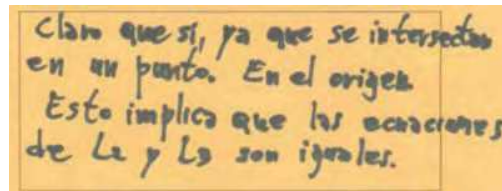 Claro que sí, ya que se intersectan
en un punto. En el origen
Esto implica que las ecuaciones
de L2 y L3 son iguales.